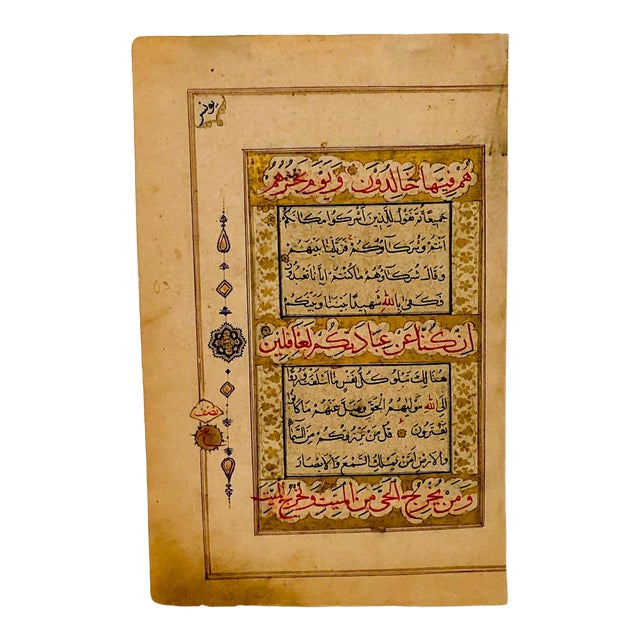 يونس
هم فيها خالدون ويوم نحشرهم
جميعا ثم نقول للذين أشركوا مكانكم
أنتم وشركاؤكم فزيلنا بينهم
وقال شركاؤهم ما كنتم إيانا تعبدون
فكفى بالله شهيدا بيننا وبينكم
إن كنا عن عبادتكم لغافلين
هنالك تبلو كل نفس ما أسلفت وردوا
إلى الله مولاهم الحق وضل عنهم ما كانوا
يفترون قل من يرزقكم من السماء
والأرض أمن يملك السمع والأبصار
ومن يخرج الحي من الميت ويخرج الميت
نصف